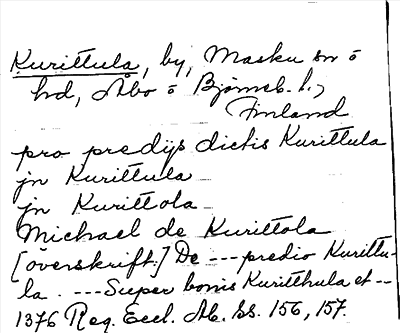 Kurittula, by, Masku sn o
hd, Åbo o Björneb. l.,
Finland
pro predijs dictis Kurittula
jn Kurittula
jn Kurittola
Michael de Kurittola
[överskrift:] De --- predio Kurittu-
la . --- Super bonis Kuritthula et --
1376 Reg. Eccl. Ab. ss. 156, 157.